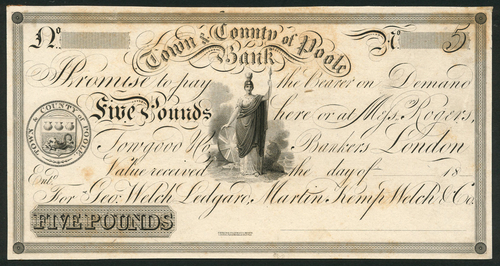 No. No. 5
Town & County of Poole
Bank
I Promise to pay the Bearer on Demand
Five Pounds here or at Mess. Rogers,
Towgood & Co. Bankers London
Value received the day of 18
Entd.
For Geo: Welch Ledgard, Martin Kemp Welch & Co.
TOWN & COUNTY OF POOLE
FIVE POUNDS